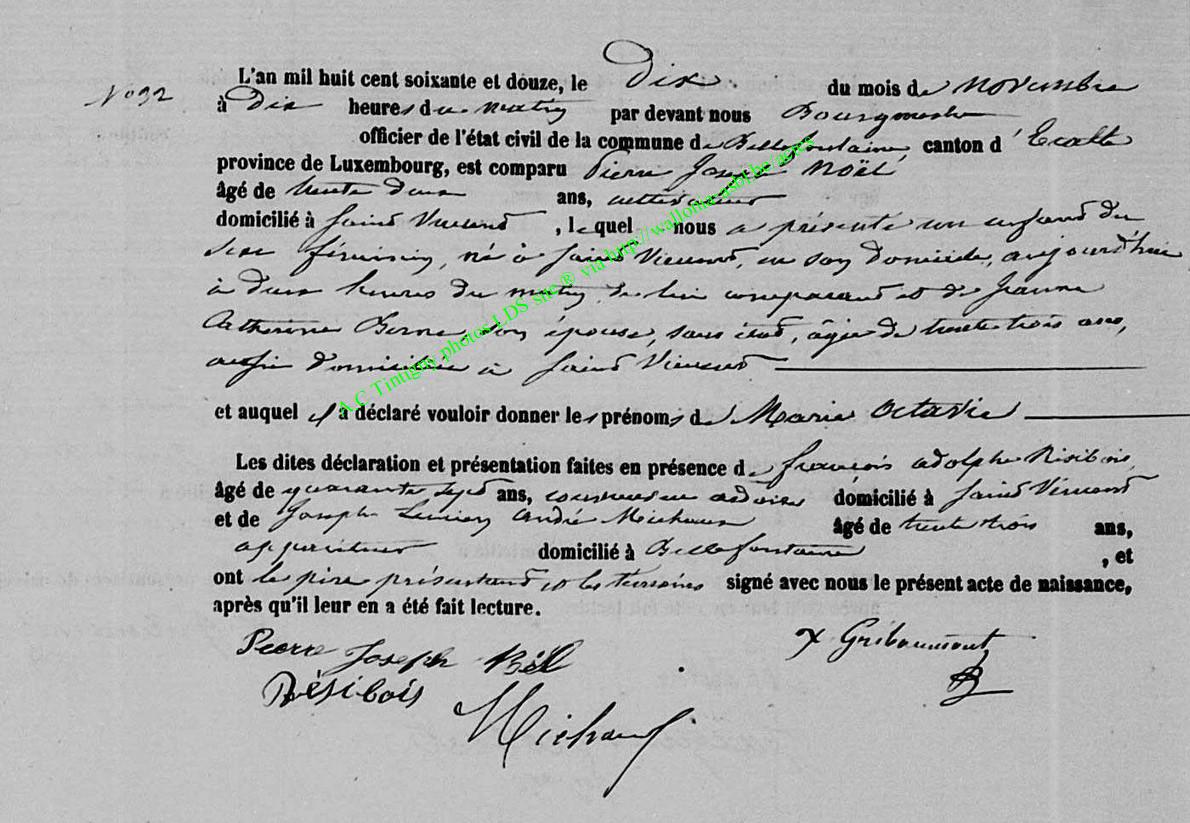 N° 92
L'an mil huit cent soixante et douze, le Dix du mois de novembre
à Dix heures du matin par devant nous Bourgmestre
officier de l'état civil de la commune de Bellefontaine, canton d'Etalle
province de Luxembourg, est comparu Pierre Joseph Noël
âgé de trente deux ans, cultivateur
domicilié à Saint Vincent, lequel nous a présenté un enfant du
sexe féminin, né à Saint Vincent, en son domicile, aujourd'hui
à deux heures du matin, de lui comparant et de Jeanne
Catherine Borne, son épouse, sans état, âgée de trente trois ans,
aussi domiciliée à Saint Vincent
et auquel il a déclaré vouloir donner les prénoms de Marie Octavie
Les dites déclaration et présentation faites en présence de françois adolphe Résibois,
âgé de quarante sept ans, domicilié à Saint Vincent
et de Joseph Lucien André Michaux âgé de trente trois ans,
appariteur domicilié à Bellefontaine, et
ont le père présentant et les temoins signé avec nous le présent acte de naissance,
après qu'il leur en a été fait lecture.
Pierre Joseph Noël X Gribaumont
Résibois
Michaux
A.C Tintigny photos LDS site ® via http://wallonia.asbl.be/actes